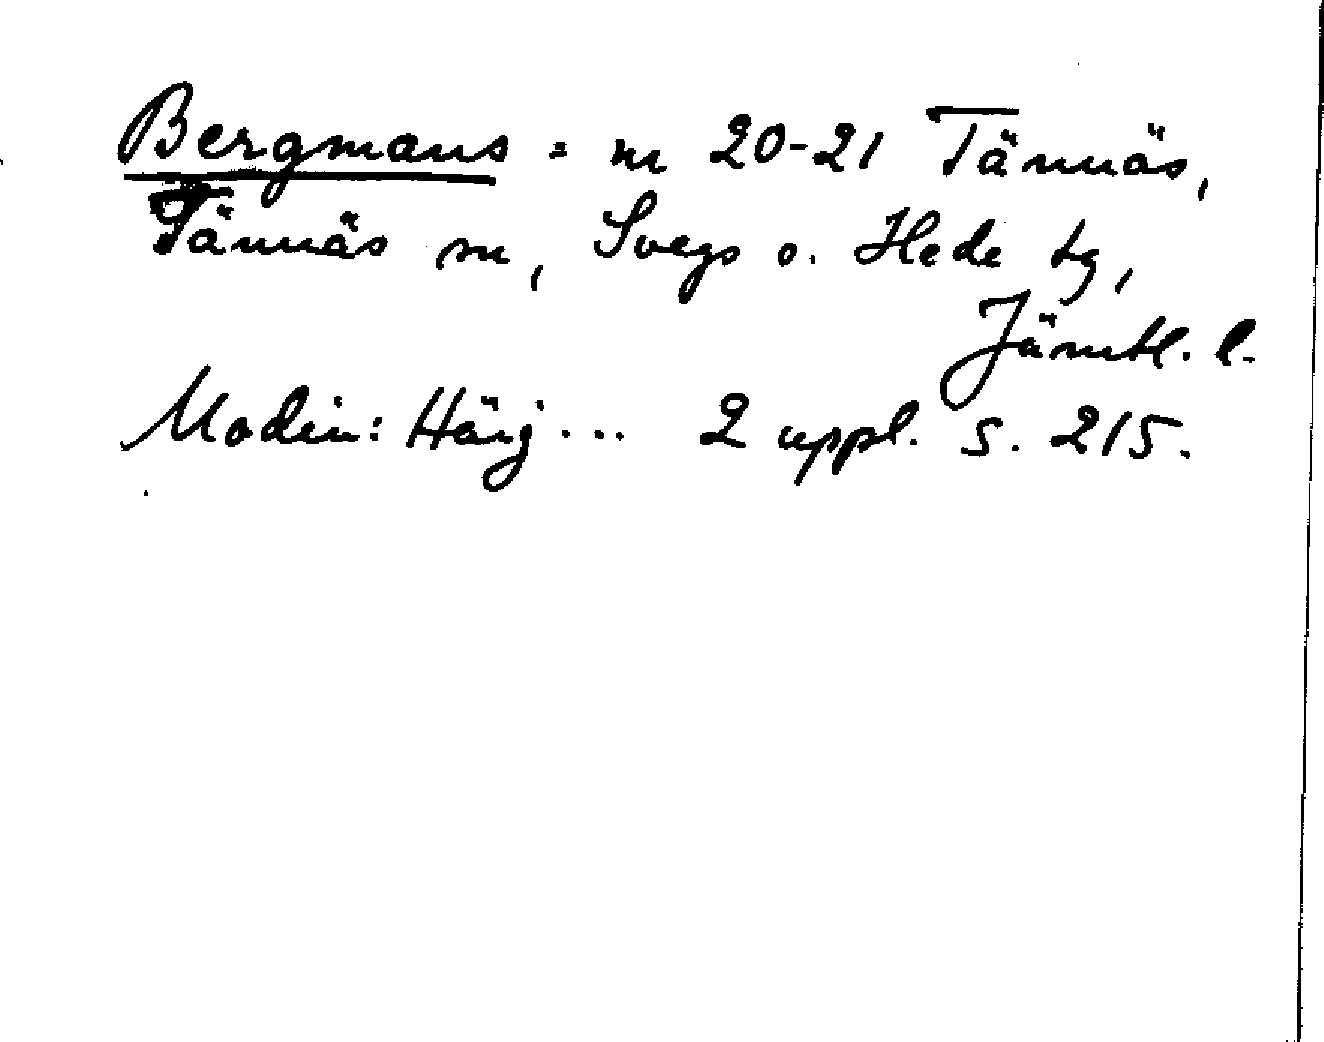 Bergmans = nr 20-21 Tännäs,
Tännäs sn, Svegs o. Hede tg,
Jämtl. l.
Modin: Härj... 2 uppl. s. 215.